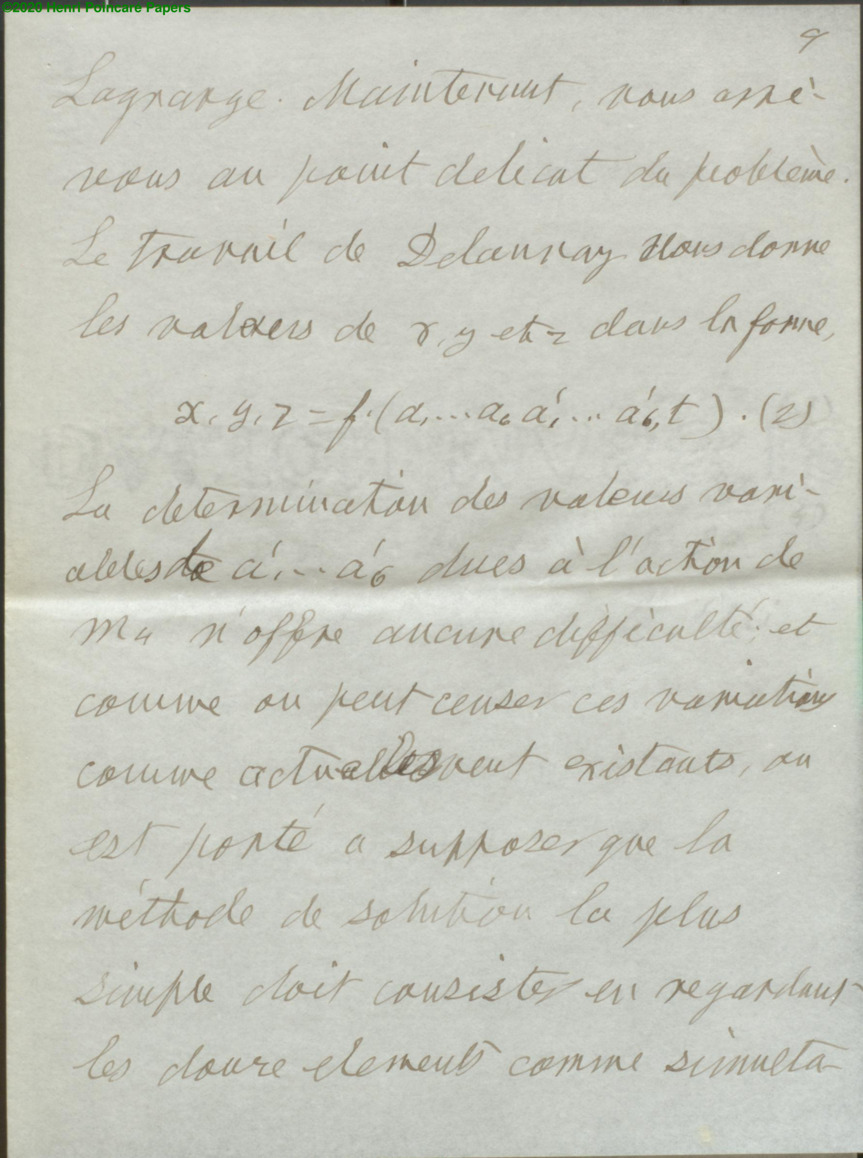 ©2020 Henri Poincaré Papers
9
Lagrange. Maintenant, nous arri-
vons au point delicat du problème.
Le travail de Delaunay nous donne
les valeurs de x, y et z dans la forme,
x, y, z = f.(a₁...a₆ a'₁... a'₆, t). (2)
La determination des valeurs vari-
ables de a'₁... a'₆ dues à l'action de
M₄ n'offre aucune difficulté; et
comme on peut censer ces variations
comme actuellement existants, on
est porté a supposer que la
méthode de solution la plus
simple doit consister en regardant
les douze elements comme simulta-